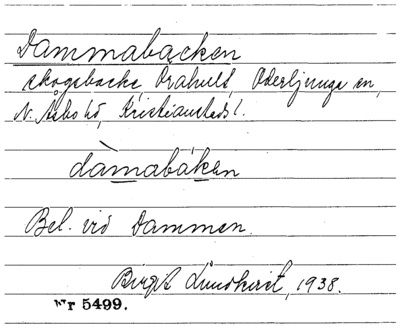 Dammabacken
skogsbacke, Orahult, Oderljunga sn,
N. Åsbo hd, Kristianstads l.
dàmabáken
Bel. vid Dammen.
Birgit Lundkvist, 1938.
Nr 5499.